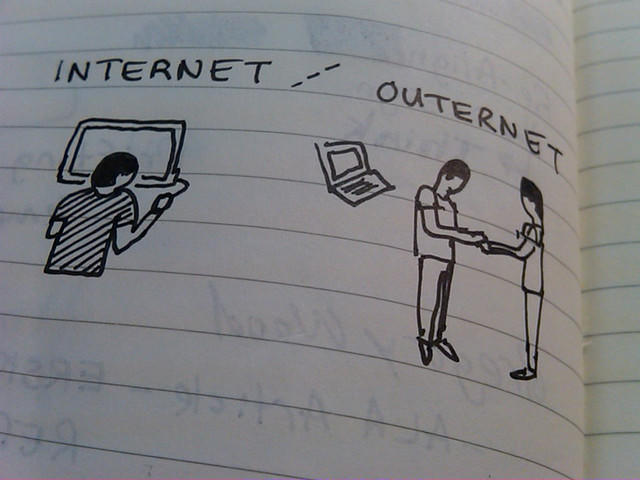 INTERNET
OUTERNET